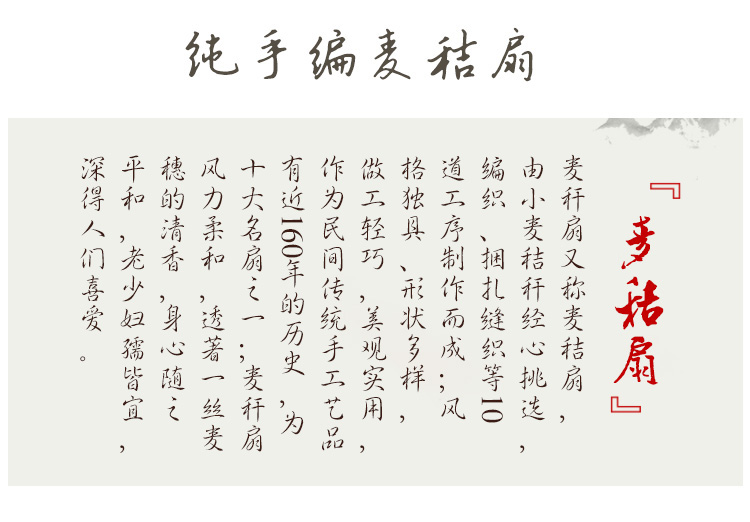 纯手编麦秸扇
『麦秸扇』
麦秆扇又称麦秸扇,
由小麦秸秆经心挑选,
编织、捆扎缝织等10
道工序制作而成;风
格独具、形状多样,
做工轻巧,美观实用,
作为民间传统手工艺品
有近160年的历史,为
十大名扇之一;麦秆扇
风力柔和,透著一丝麦
穗的清香,身心随之
平和,老少妇孺皆宜,
深得人们喜爱。